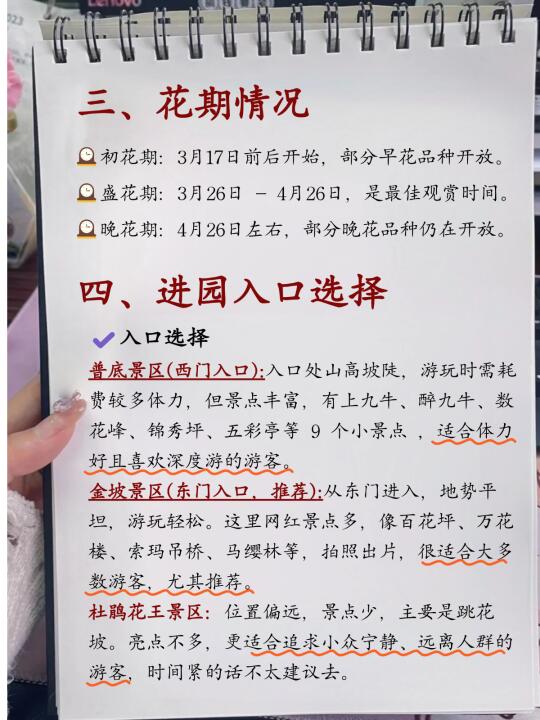 023
Lenovo
三、花期情况
初花期：3月17日前后开始，部分早花品种开放。
盛花期：3月26日 - 4月26日，是最佳观赏时间。
晚花期：4月26日左右，部分晚花品种仍在开放。
四、进园入口选择
入口选择
普底景区(西门入口):入口处山高坡陡，游玩时需耗
费较多体力，但景点丰富，有上九牛、醉九牛、数
花峰、锦秀坪、五彩亭等 9 个小景点 ，适合体力
好且喜欢深度游的游客。
金坡景区(东门入口，推荐):从东门进入，地势平
坦，游玩轻松。这里网红景点多，像百花坪、万花
楼、索玛吊桥、马缨林等，拍照出片，很适合大多
数游客，尤其推荐。
杜鹃花王景区：位置偏远，景点少，主要是跳花
坡。亮点不多，更适合追求小众宁静、远离人群的
游客，时间紧的话不太建议去。